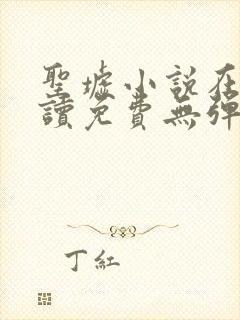 聖墟小說在
讀免費無彈
丁紅